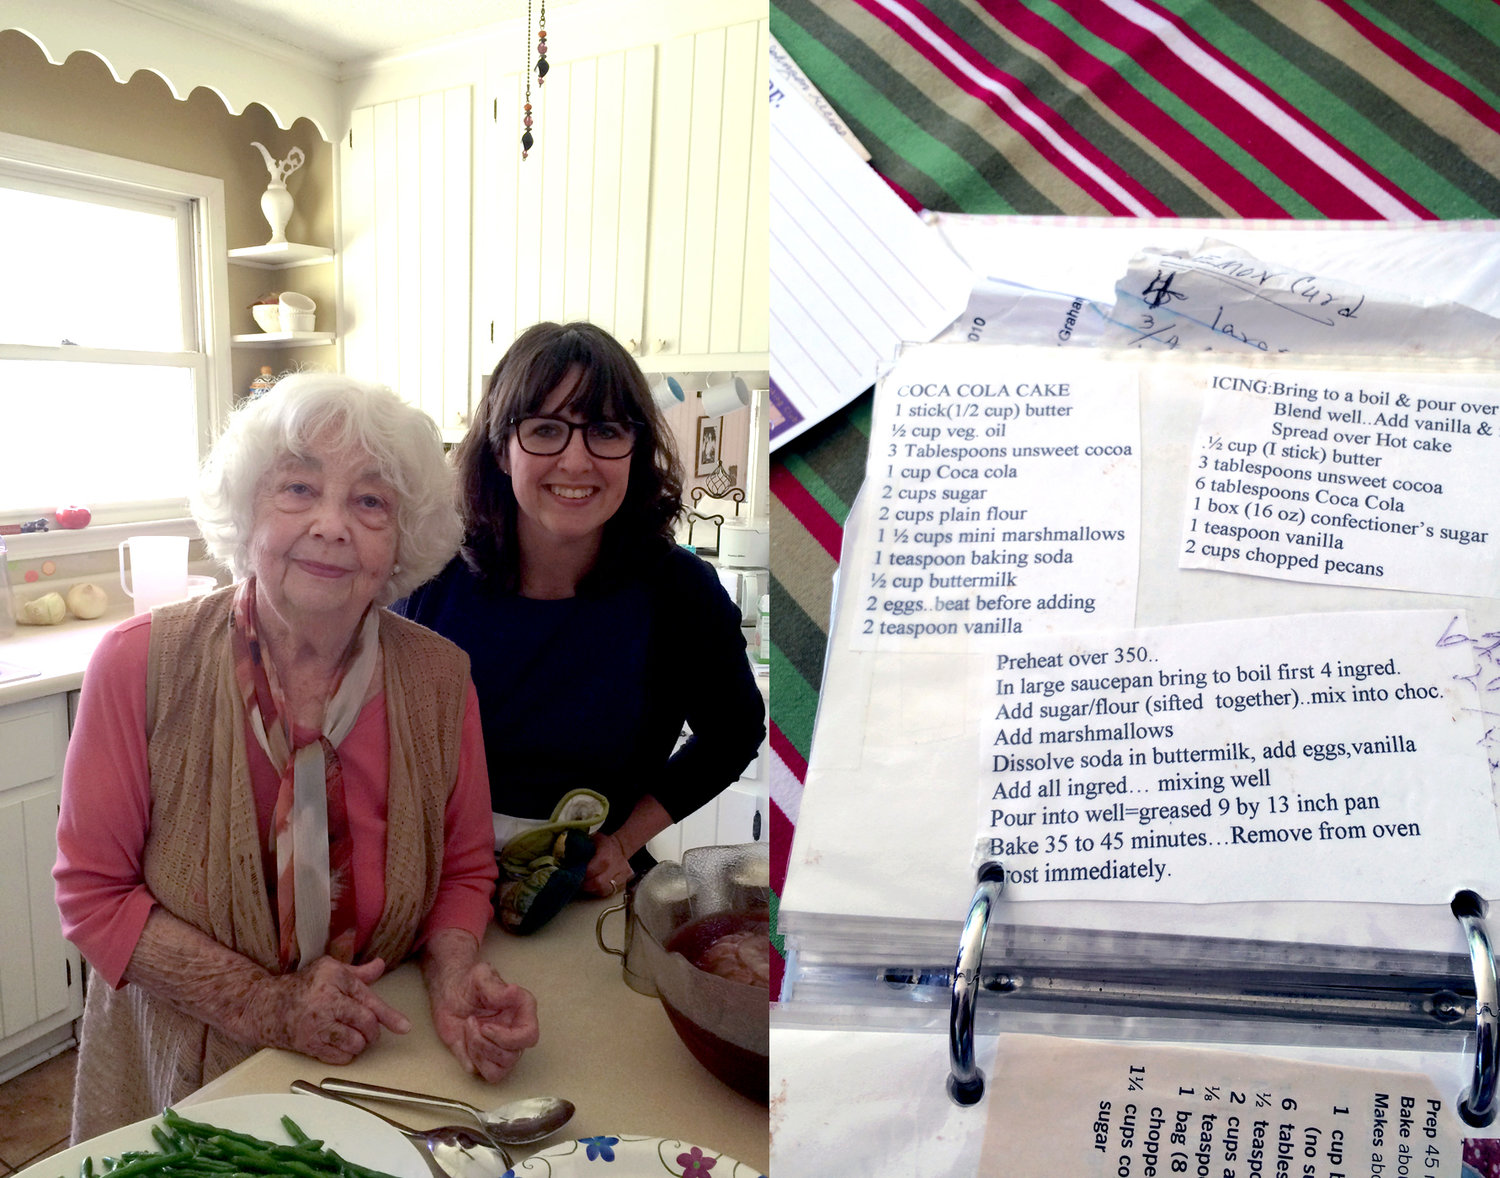 Lemon Curd
4 large
3/4
2010
Graham
COCA COLA CAKE
1 stick(1/2 cup) butter
½ cup veg. oil
3 Tablespoons unsweet cocoa
1 cup Coca cola
2 cups sugar
2 cups plain flour
1 ½ cups mini marshmallows
1 teaspoon baking soda
½ cup buttermilk
2 eggs..beat before adding
2 teaspoon vanilla
ICING:Bring to a boil & pour over
Blend well..Add vanilla &
Spread over Hot cake
.½ cup (I stick) butter
3 tablespoons unsweet cocoa
6 tablespoons Coca Cola
1 box (16 oz) confectioner's sugar
1 teaspoon vanilla
2 cups chopped pecans
Preheat over 350..
In large saucepan bring to boil first 4 ingred.
Add sugar/flour (sifted together)..mix into choc.
Add marshmallows
Dissolve soda in buttermilk, add eggs,vanilla
Add all ingred… mixing well
Pour into well=greased 9 by 13 inch pan
Bake 35 to 45 minutes…Remove from oven
rost immediately.
Prep 45
Bake abou
Makes abo
1 cup
(no su
6 tables
½ teasp
2 cups a
⅛ teaspo
1 bag (8
choppe
1¼ cups co
sugar